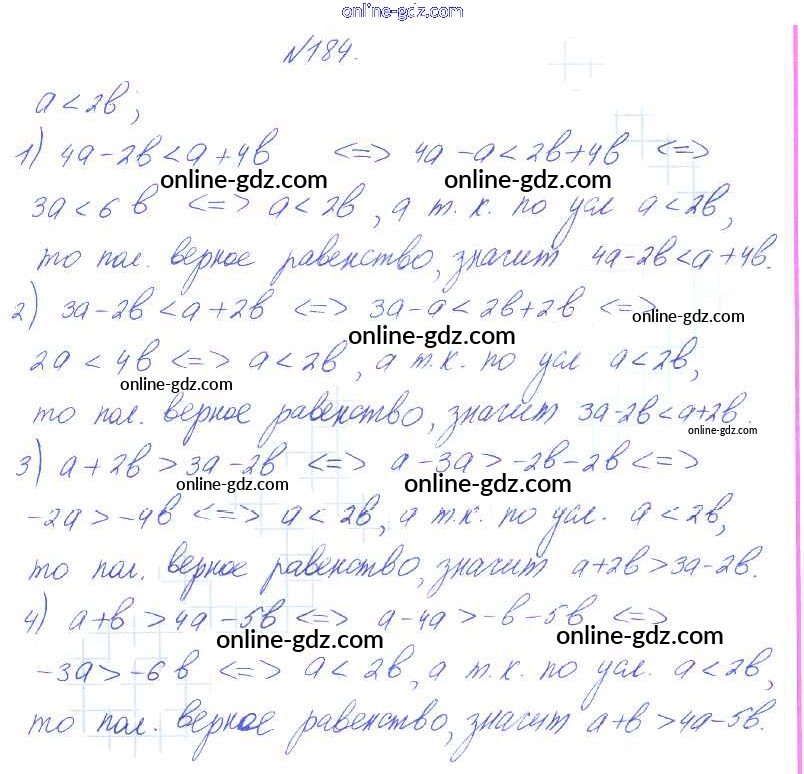 online-gdz.com
№184.
a < 2b ;
1) 4a - 2b < a + 4b <=> 4a - a < 2b + 4b <=>
online-gdz.com online-gdz.com
3a < 6b <=> a < 2b , а т.к. по усл a < 2b,
то пол. верное равенство, значит 4a - 2b < a + 4b.
2) 3a - 2b < a + 2b <=> 3a - a < 2b + 2b <=>
online-gdz.com
online-gdz.com
2a < 4b <=> a < 2b , а т.к. по усл a < 2b,
online-gdz.com
то пол. верное равенство, значит 3a - 2b < a + 2b.
online-gdz.com
3) a + 2b > 3a - 2b <=> a - 3a > -2b - 2b <=>
online-gdz.com online-gdz.com
-2a > -4b <=> a < 2b, а т.к. по усл. a < 2b,
то пол. верное равенство, значит a + 2b > 3a - 2b.
4) a + b > 4a - 5b <=> a - 4a > -b - 5b <=>
online-gdz.com online-gdz.com
-3a > -6b <=> a < 2b, а т.к. по усл. a < 2b,
то пол. верное равенство, значит a + b > 4a - 5b.